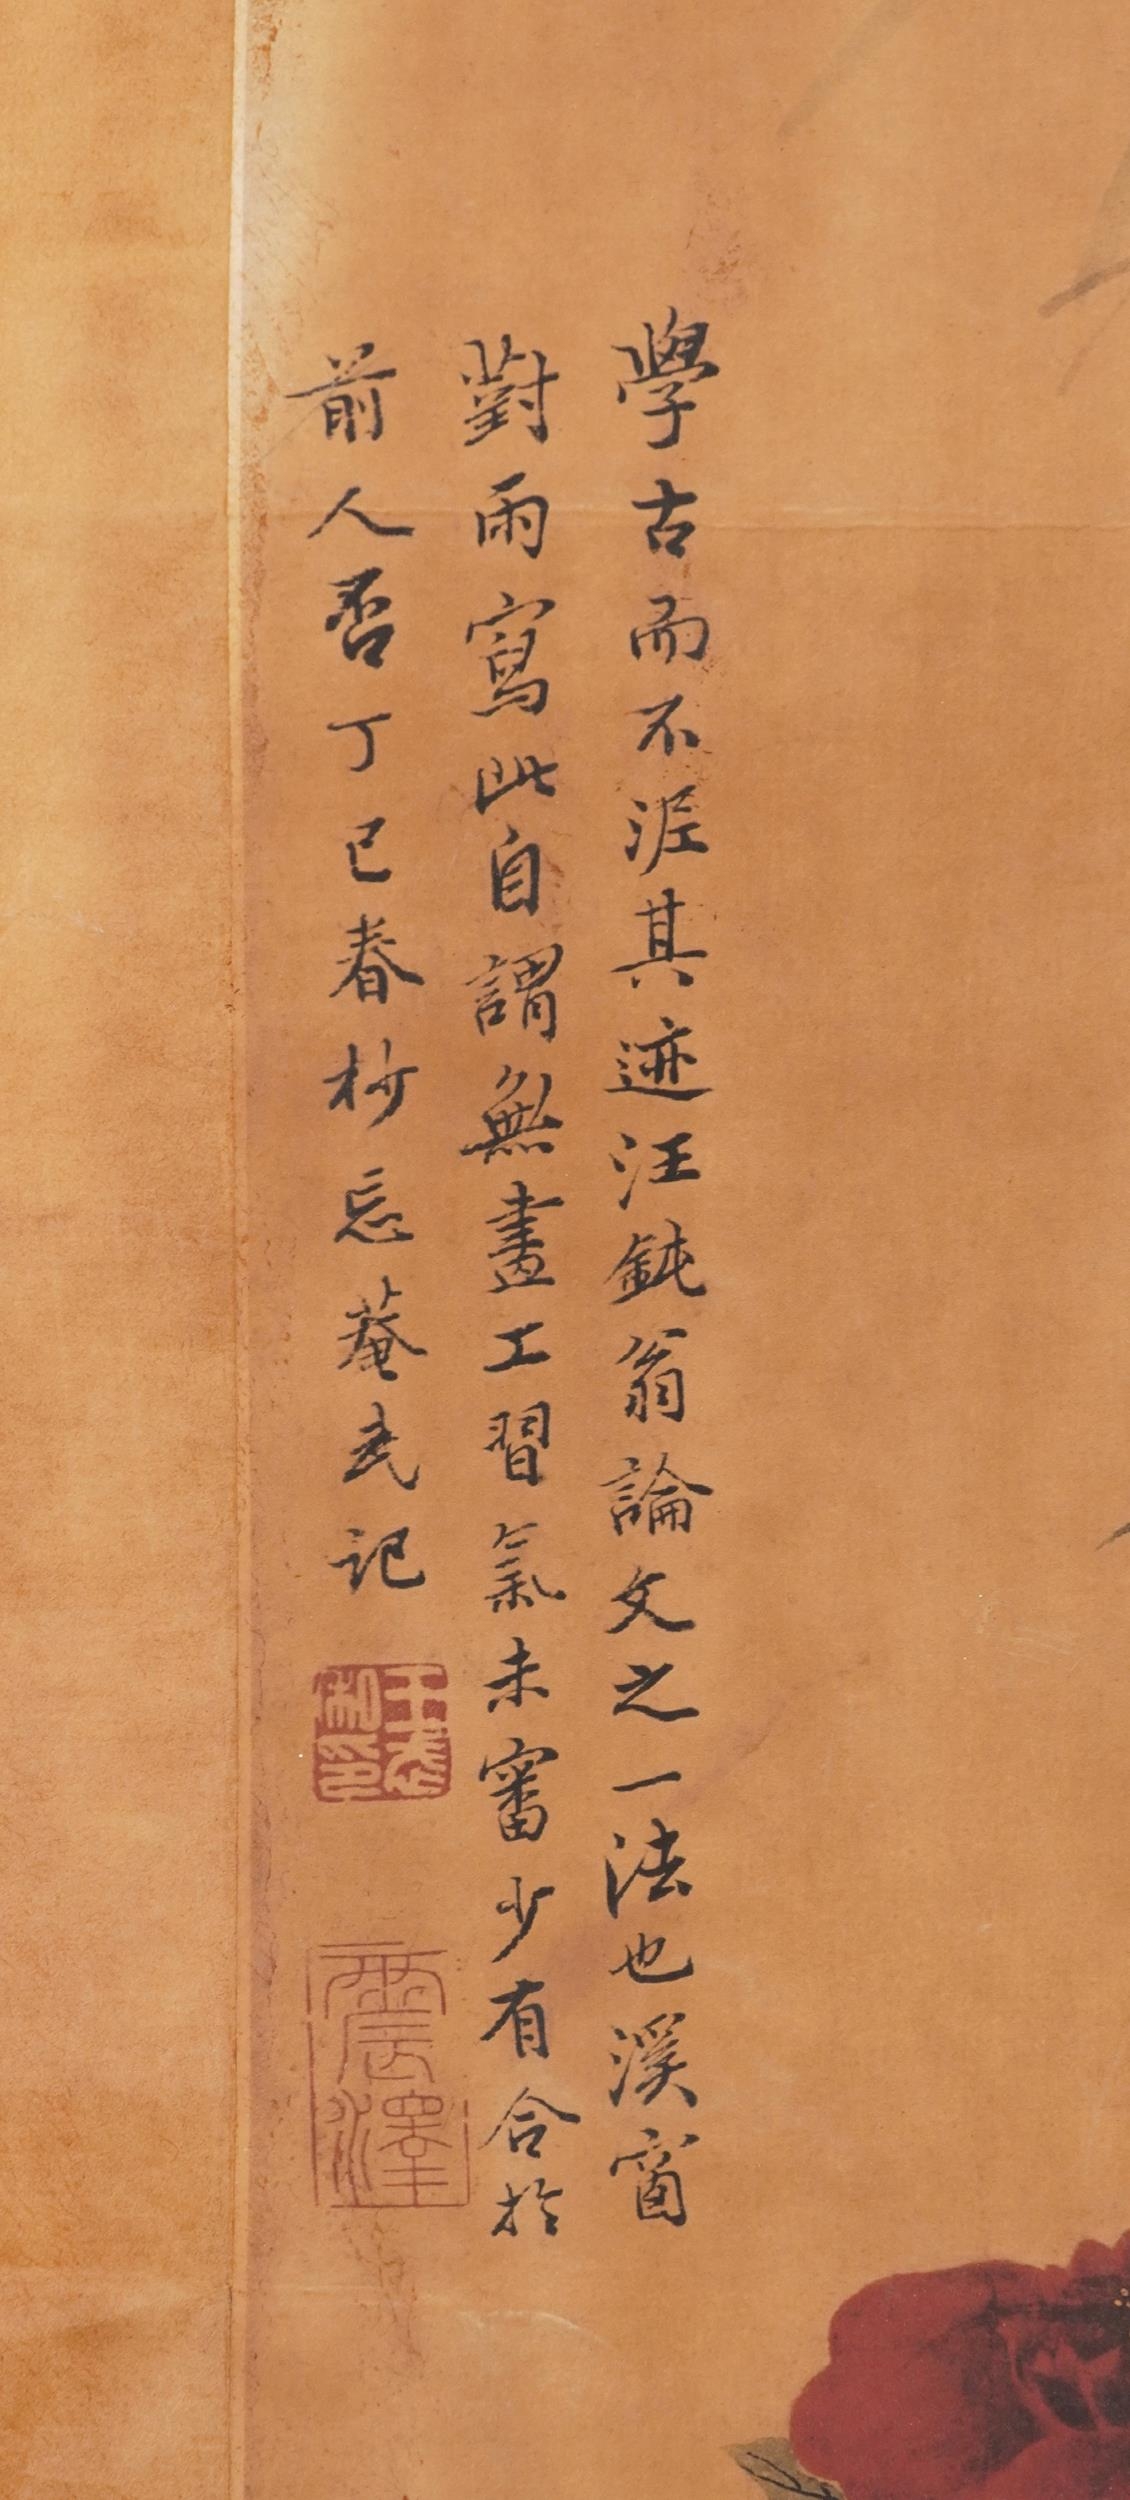 學古而不泥其迹汪鈍翁論文之一法也溪窗
對雨寫此自謂無畫工習氣未審少有合於
前人否丁巳春杪忘菴武記
王武
震澤